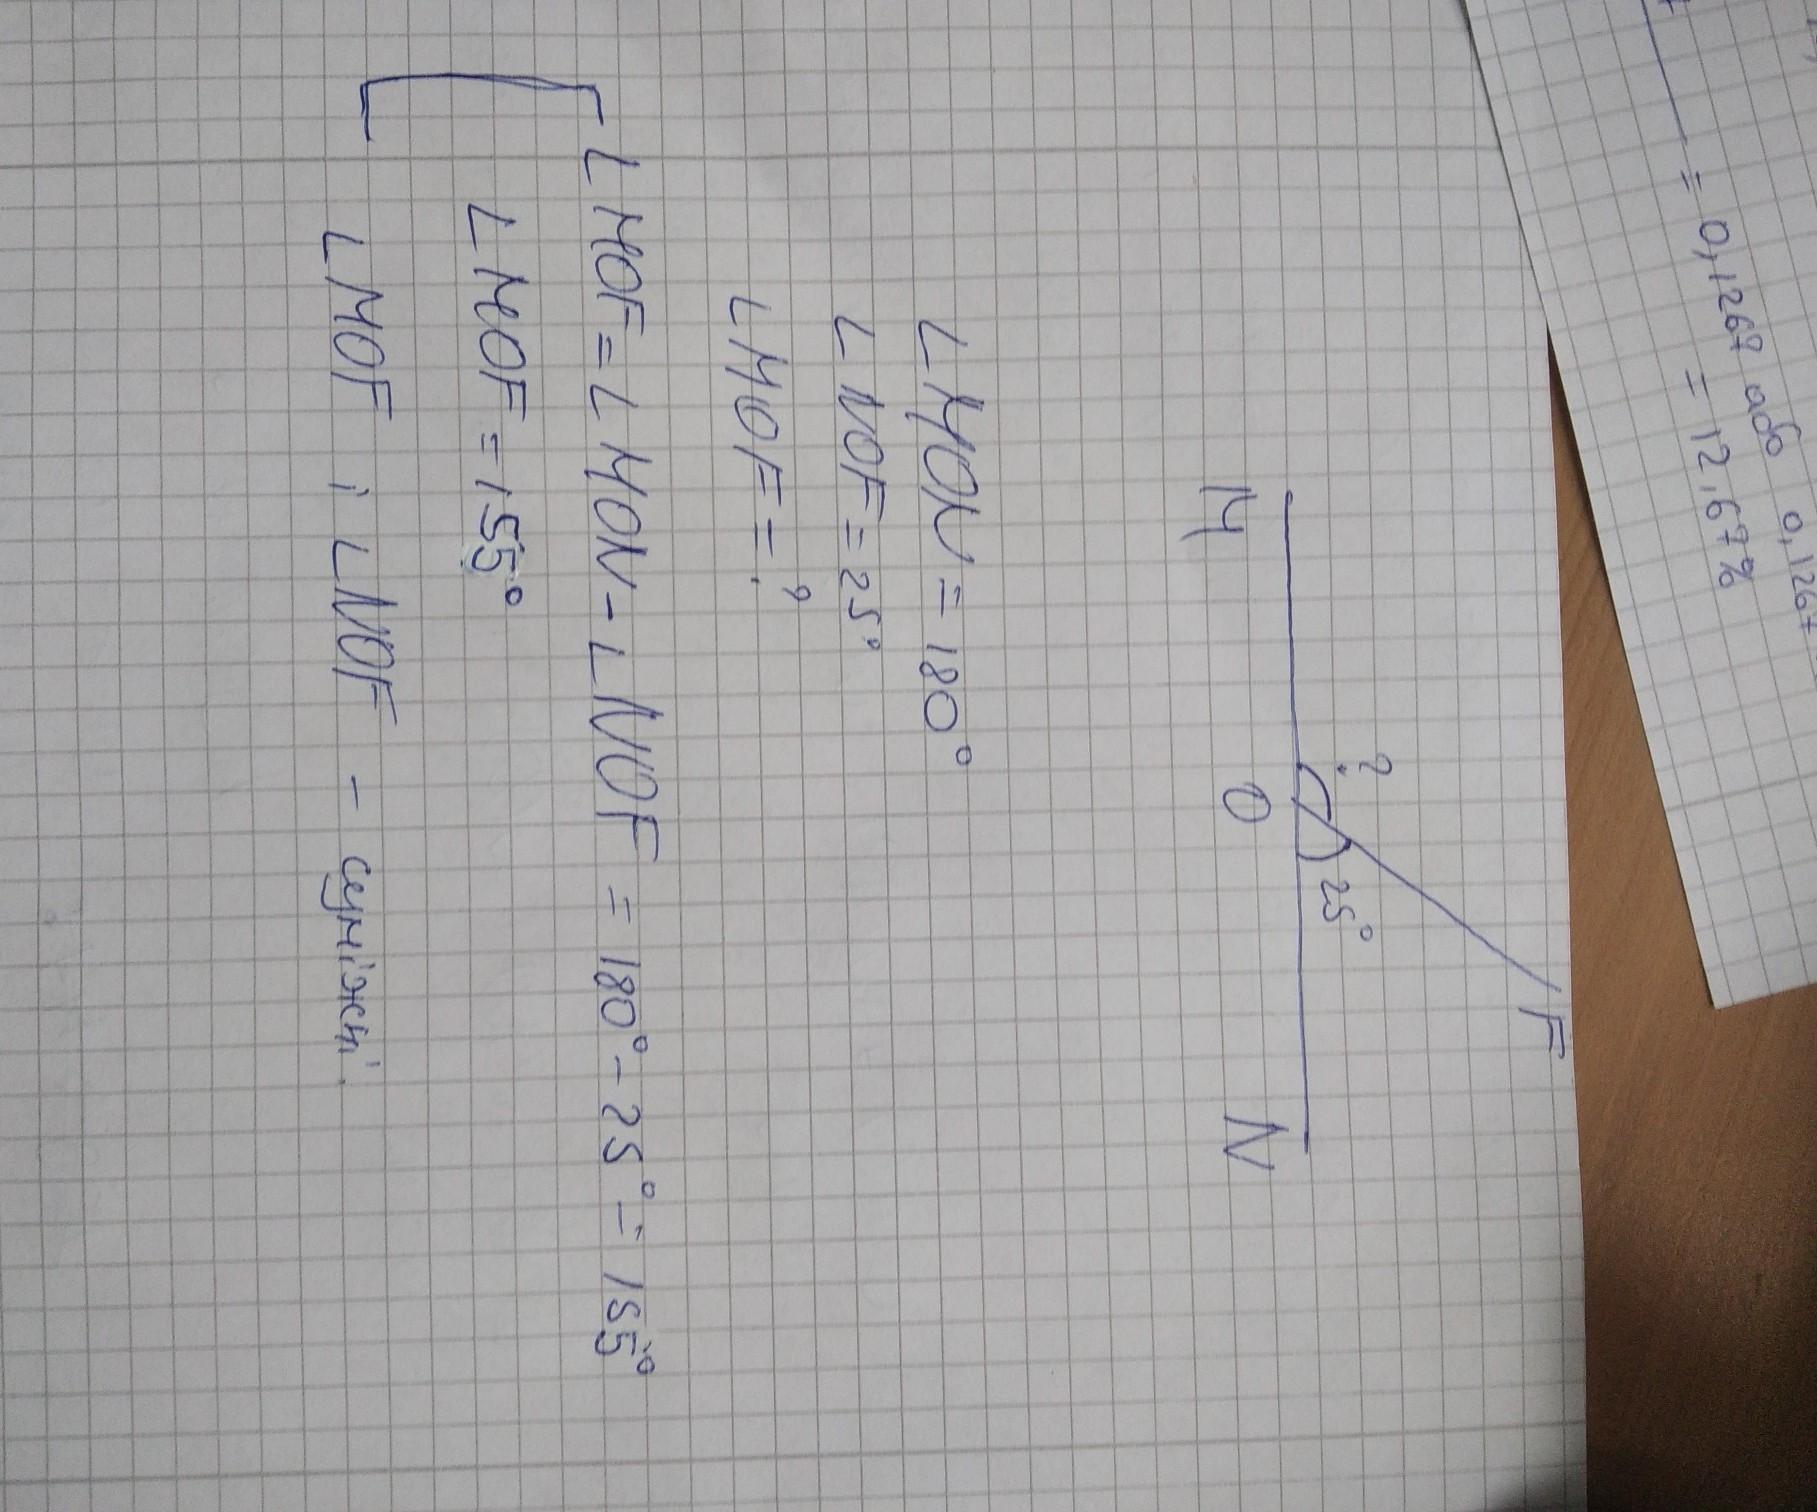 = 0,1267 або 0,1267
= 12,67%
F
?
25°
M
O
N
∠MON = 180°
∠NOF = 25°
∠MOF = ?
∠MOF = ∠MON - ∠NOF = 180° - 25° = 155°
∠MOF = 155°
∠MOF і ∠NOF - суміжні.